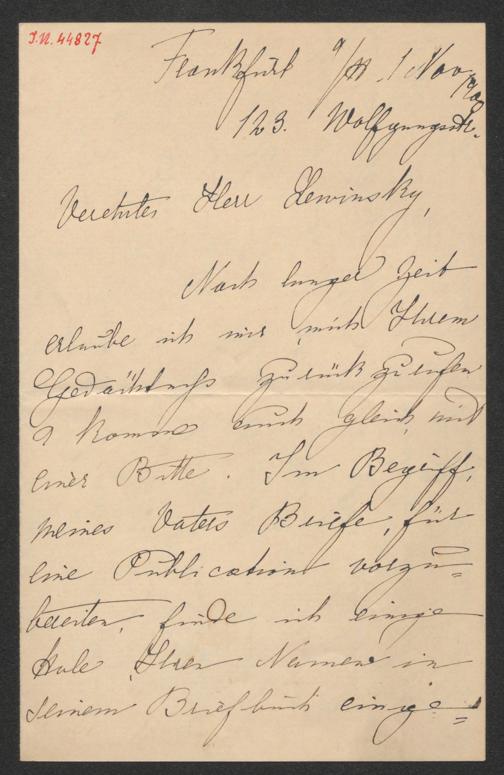 I.N. 44827
Frankfurt a/M. 1 Nov 1900
123. Wolfgangstr.
Verehrter Herr Lewinsky,
Nach langer Zeit
erlaube ich mir, mich Ihrem
Gedächtniss zurückzurufen
u komme auch gleich mit
einer Bitte. Im Begriff,
meines Vaters Briefe, für
eine Publication vorzu=
bereiten, finde ich einige
Male Ihren Namen in
seinem Briefbuch einge=